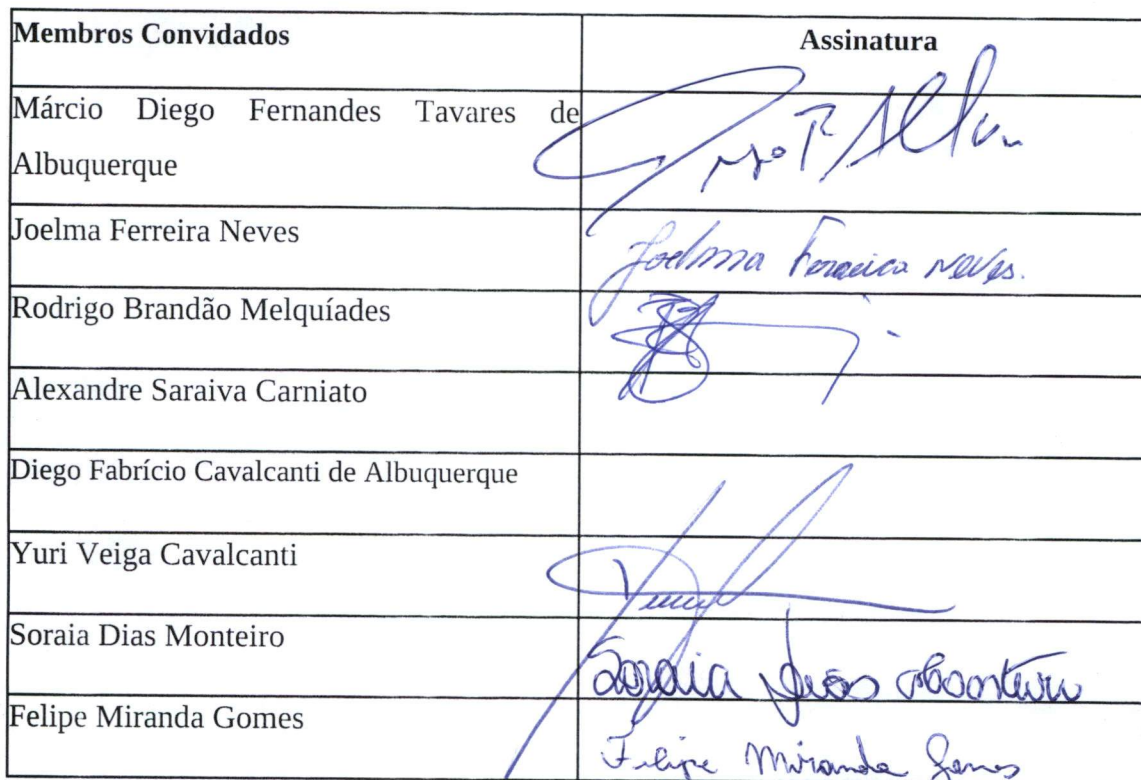 Membros Convidados Assinatura
Márcio Diego Fernandes Tavares de
Albuquerque
Joelma Ferreira Neves
Joelma Ferreira Neves.
Rodrigo Brandão Melquíades
Alexandre Saraiva Carniato
Diego Fabrício Cavalcanti de Albuquerque
Yuri Veiga Cavalcanti
Soraia Dias Monteiro
Soraia Dias Monteiro
Felipe Miranda Gomes
Felipe Miranda Gomes